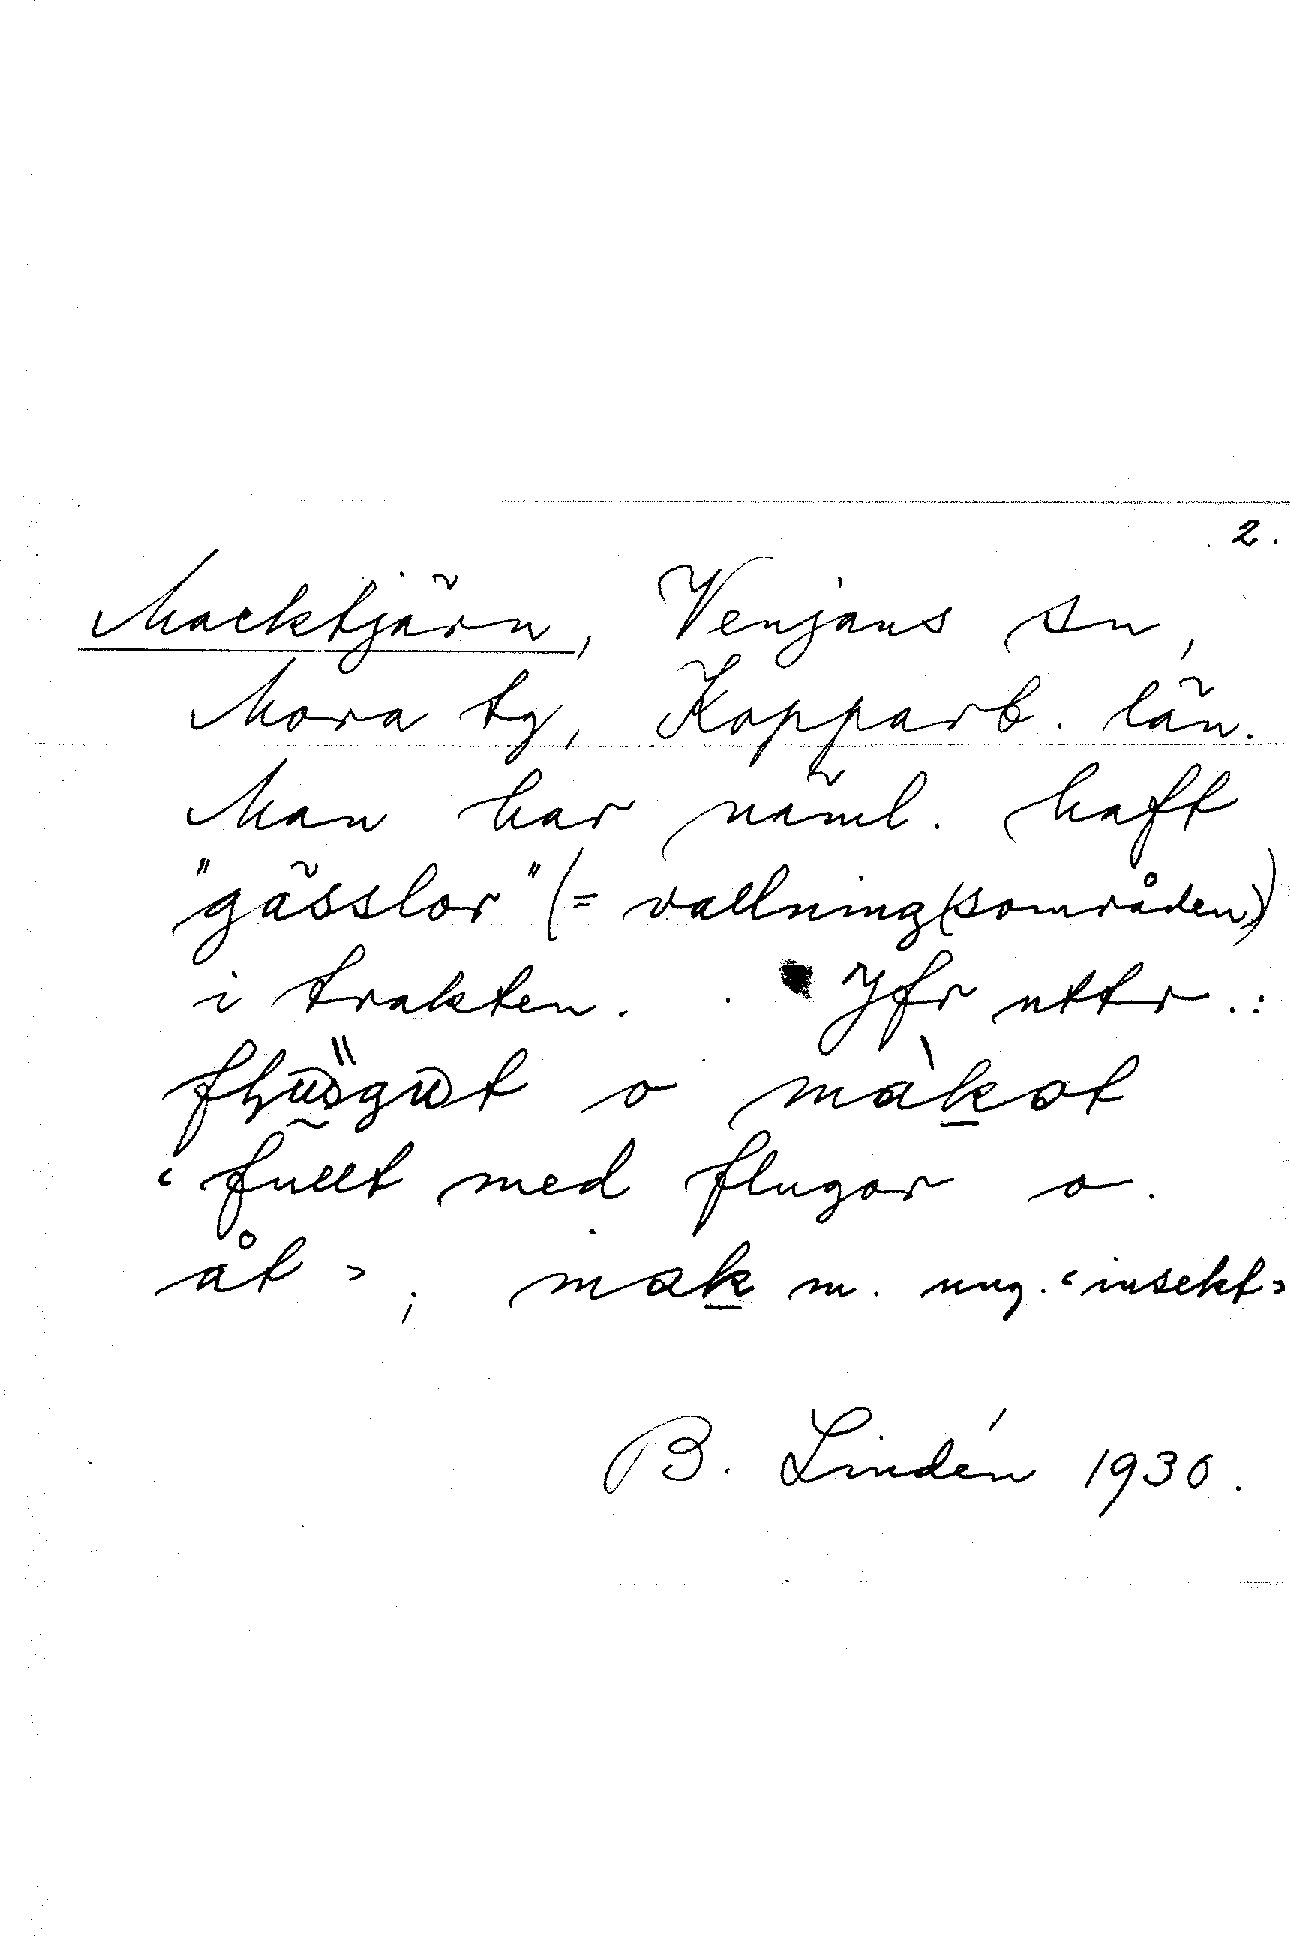 2.
Macktjärn, Venjans sn,
Mora tg, Kopparb. län.
Man har näml. haft
"gässlor" (= vallning(sområden))
i trakten. Jfr uttr.:
o màkot
‹ fullt med flugor o.
åt ›; mak m. ung. ‹ insekt ›
B. Lindén 1930.